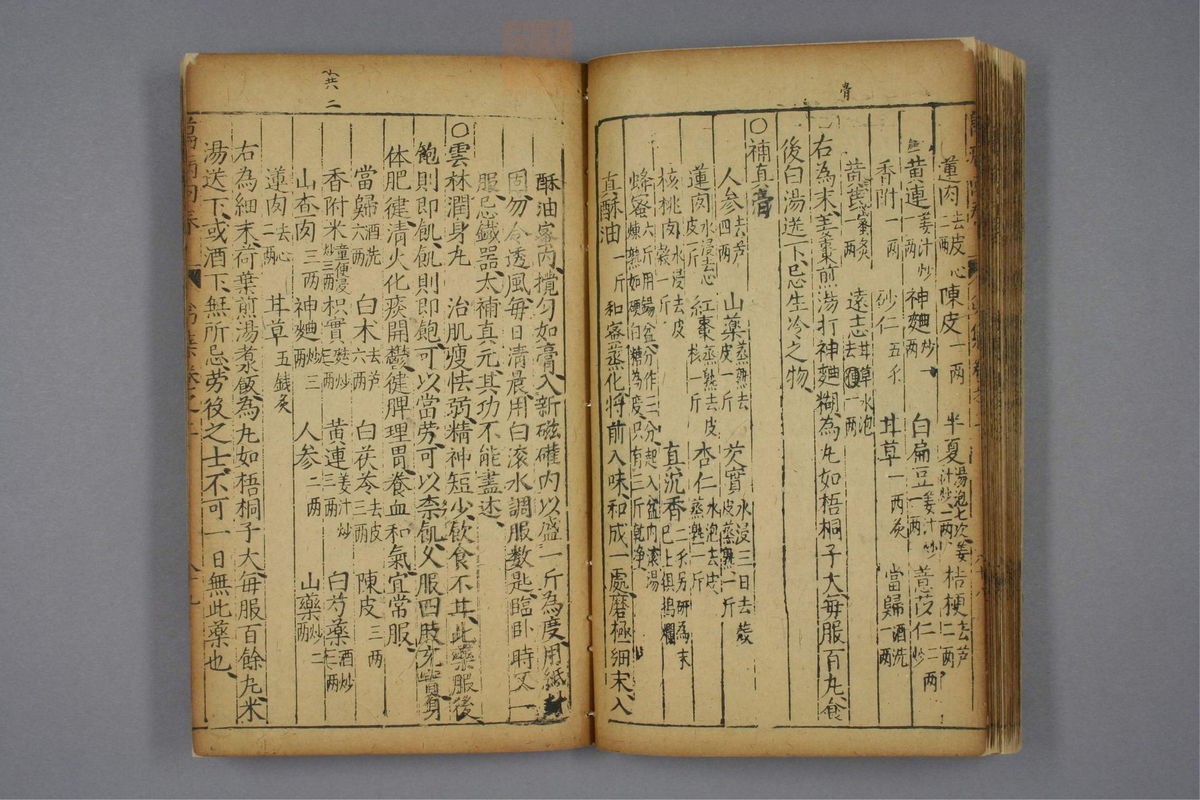 膏
蓮肉去皮心二两 陳皮一两 半夏湯泡七次姜汁炒一两 桔梗去芦二两
黄連姜汁炒一两 神麯炒一两 白扁豆姜汁炒一两 薏苡仁炒二两
香附一两 砂仁五錢 甘草一两炙 當歸酒洗一两
黄芪蜜炙一两 遠志甘草水泡去一两
右為末姜棗煎湯打神麯糊為丸如梧桐子大每服百丸食
後白湯送下忌生冷之物
〇補真膏
人参去芦四两 山藥蒸熟去皮一斤 芡實水浸三日去殼皮蒸熟一斤
蓮肉水浸去心皮一斤 紅棗蒸熟去皮核一斤 杏仁水泡去皮蒸熟一斤
核桃肉水浸去皮殼一斤 真沉香二錢另研為末已上俱搗爛
蜂蜜六斤用錫盆分作二三分起入盆內滚湯煉熟如硬白糖為度只有三斤乾净
真酥油一斤和蜜蒸化將前八味和成一處磨極細末入
共二
酥油蜜內攪勻如膏入新磁確內以盛一斤為度用紙封
固勿令透風每日清晨用白滚水調服数匙臨卧時又一
服忌鐵器大補真元其功不能盡述
〇雲林潤身丸 治肌瘦怯弱精神短少飲食不甘此藥服後
飽則即飢飢則即飽可以當劳可以柰飢久服四肢充實身
体肥健清火化痰開鬱健脾理胃養血和氣宜常服
當歸酒洗六两 白术去芦六两 白茯苓去皮三两 陳皮三两
香附米童便浸炒三两 枳實麩炒三两 黄連姜汁炒三两 白芍藥酒炒三两
山查肉三两 神麯炒三两 人参二两 山藥炒二两
蓮肉去心二两 甘草五錢炙
右為細末荷葉煎湯煮飯為丸如梧桐子大每服百餘丸米
湯送下或酒下無所忌劳役之士不可一日無此藥也